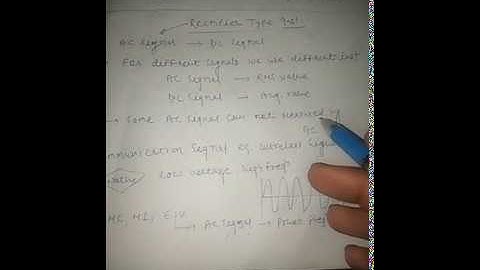 Rectifier Type Inst.
AC signal → DC signal
For diffrent signals we use diffrent inst
AC signal → RMS value
DC signal → Avg. value
→ Some AC signal can not measured by
AC
mmunication signal eg. wireless signal
Value low voltage high freq
MC, MI, EDM
→ AC signal → Power freq